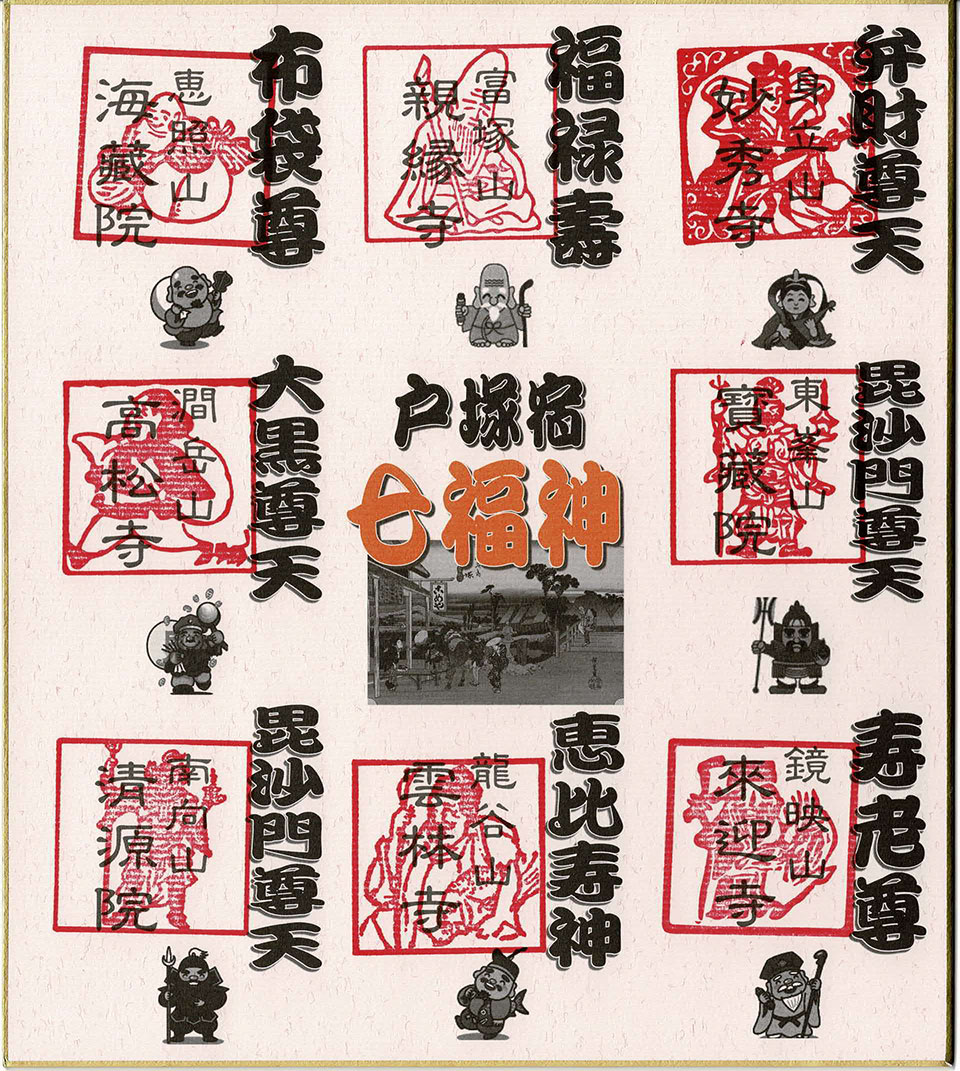 弁財尊天
身立山
妙秀寺
福禄壽
富塚山
親縁寺
布袋尊
恵照山
海藏院
毘沙門尊天
東峯山
寶藏院
戸塚宿
七福神
こめや
大黒尊天
澗岳山
高松寺
寿老尊
鏡映山
來迎寺
恵比寿神
龍谷山
雲林寺
毘沙門尊天
南向山
清源院